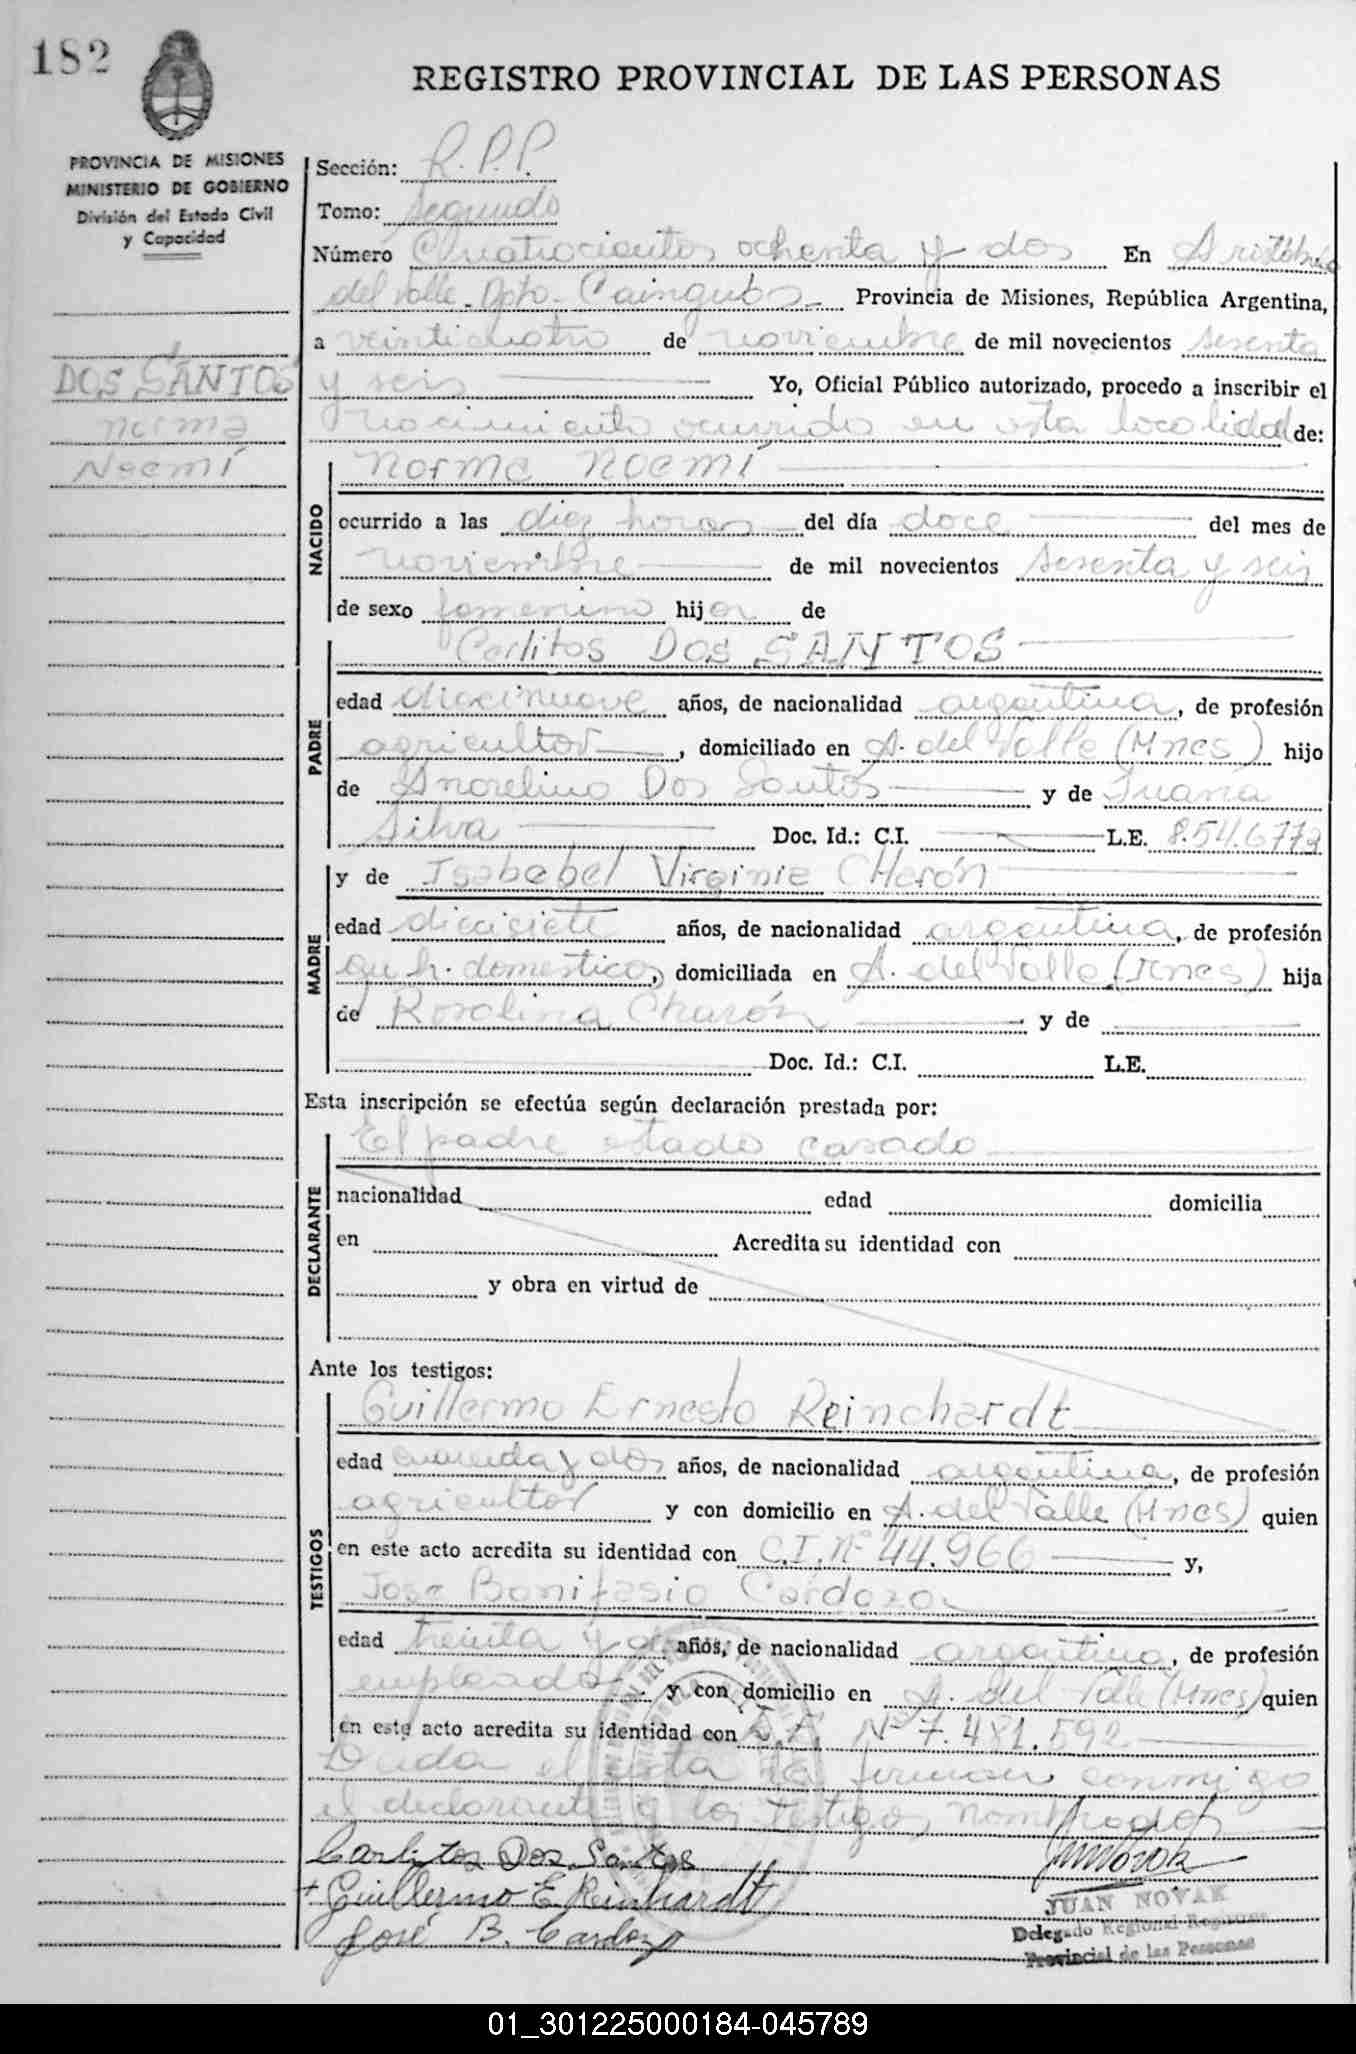 182
REGISTRO PROVINCIAL DE LAS PERSONAS
PROVINCIA DE MISIONES
MINISTERIO DE GOBIERNO
División del Estado Civil
y Capacidad
Sección: R.P.P.
Tomo: Segundo
Número Cuatrocientos ochenta y dos En Aristóbulo
del Valle - Dpto. Cainguás - Provincia de Misiones, República Argentina,
a veinticuatro de noviembre de mil novecientos sesenta
DOS SANTOS
Norma
Noemí
y seis Yo, Oficial Público autorizado, procedo a inscribir el
nacimiento ocurrido en esta localidad de:
NACIDO
Norma Noemí
ocurrido a las diez horas del día doce del mes de
noviembre de mil novecientos sesenta y seis
de sexo femenino hija de
PADRE
Carlitos DOS SANTOS
edad diecinueve años, de nacionalidad argentina, de profesión
agricultor, domiciliado en A. del Valle (Mnes) hijo
de Dos Santos y de Juana
Silva Doc. Id.: C.I. L.E. 8.546.772
MADRE
y de Isabebel Virginia CHarón
edad diecisiete años, de nacionalidad argentina, de profesión
qu h. domesticos, domiciliada en A. del Valle (Mnes) hija
de Rosalina Charón y de
Doc. Id.: C.I. L.E.
Esta inscripción se efectúa según declaración prestada por:
DECLARANTE
El padre estado casado
nacionalidad edad domicilia
en Acredita su identidad con
y obra en virtud de
Ante los testigos:
TESTIGOS
Guillermo Ernesto Reinchardt
edad y dos años, de nacionalidad argentina, de profesión
agricultor y con domicilio en A. del Valle (Mnes) quien
en este acto acredita su identidad con C.I. Nº 44.966 y,
Jose Bonifasio Cardozo
edad treinta y años, de nacionalidad argentina, de profesión
empleado y con domicilio en A. del Valle (Mnes) quien
en este acto acredita su identidad con Nº 7.481.592
Leida el acta la firman conmigo
el declarante y los testigos nombrados
Carlitos Dos Santos
Guillermo E. Reinhardt
José B. Cardozo
JUAN NOVAK
Delegado Regional Registro
Provincial de las Personas
01_301225000184-045789